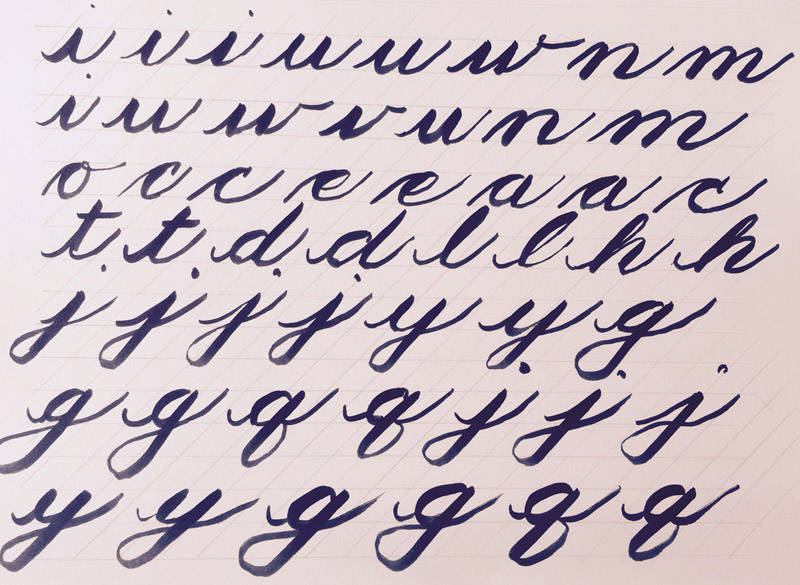 i i i u u w n m
i u w v u n m
o c c e e a a c
t t d d l l h h
j j j j y y g
g g q q j j j
y y g g q q